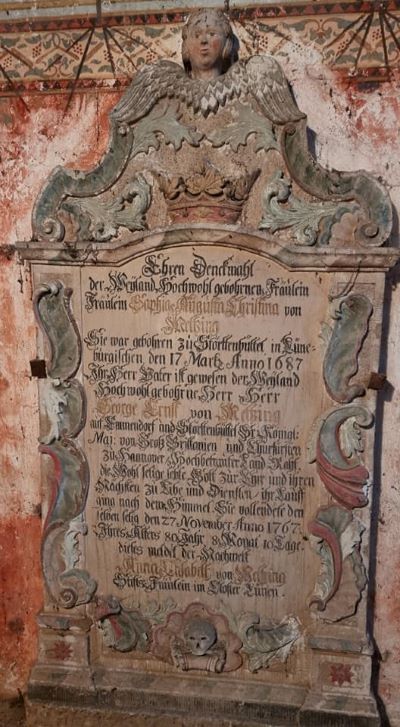 Ehren Denckmahl
der Weyland Hochwohl gebohrnen Fräulein
Fräulein Sophia Augusta Christina von
Melzing
Sie war gebohren zu Störttenbüttel in Lüne-
bürgischen, den 17 Martz Anno 1687
Ihr Herr Vater ist gewesen der Weyland
Hochwohl gebohrne Herr Herr
George Ernst von Melzing
auf Emmendorf und Störttenbüttel Sr: Königl:
Maj: von Groß Brittonien und Churfürsten
zu Hannover, Hochbetrauter Land Raht,
die Wohl selige lebte Gott zur Ehr und ihren
Nächsten zu Libe und Diensten, ihr Lauff
ging nach dem Himmel. Sie vollendete den
selben selig den 27 November Anno 1767.
Ihres Alters 80 Jahr 8 Monat 10 Tage.
dieses meldet der Nachwelt
Maria Elisabeth von Melzing
Stifts Fräulein im Closter Lünen.